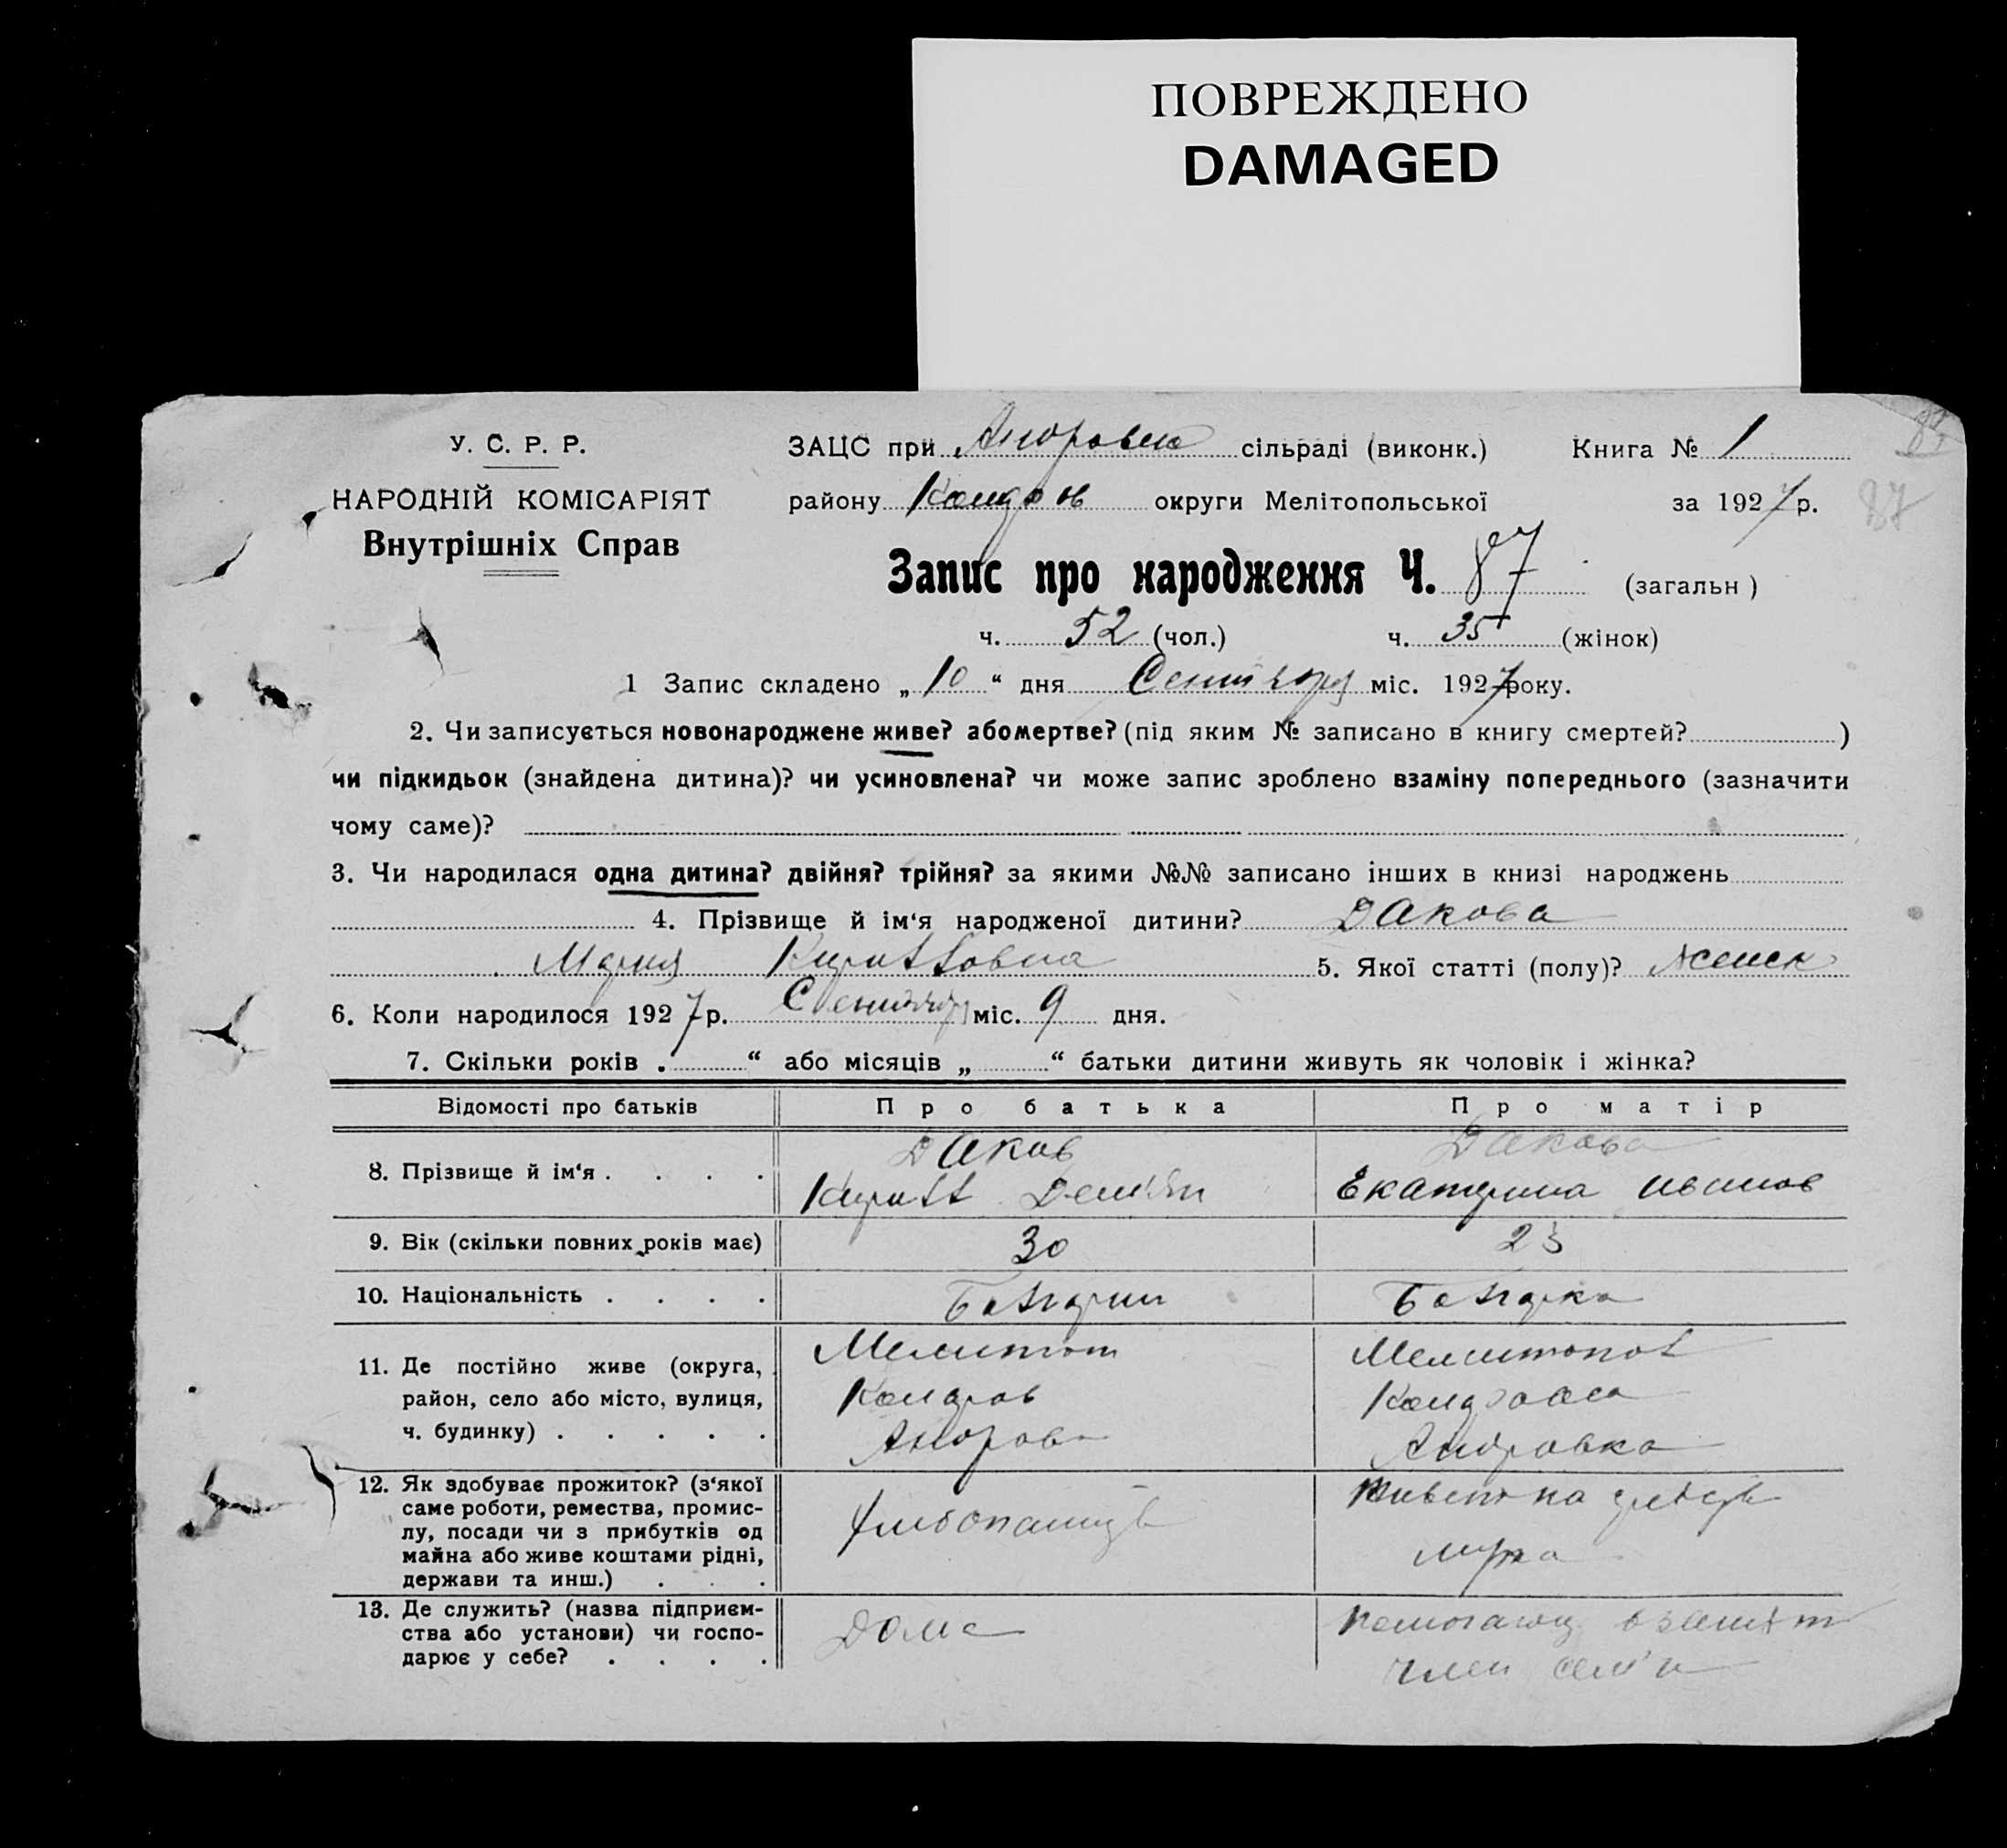 ПОВРЕЖДЕНО
DAMAGED
87
У. С. Р. Р.
НАРОДНІЙ КОМІСАРІЯТ
Внутрішніх Справ
ЗАЦС при сільраді (виконк.) Книга № 1
району округи Мелітопольської за 1927 р.
87
Запис про народження Ч. 87 (загальн )
ч. 52 (чол.) ч. 35 (жінок)
1 Запис складено „ 10 “ дня Сентября міс. 1927 року.
2. Чи записується новонароджене живе? або мертве? (під яким № записано в книгу смертей? )
чи підкидьок (знайдена дитина)? чи усиновлена? чи може запис зроблено взаміну попереднього (зазначити
чому саме)?
3. Чи народилася одна дитина? двійня? трійня? за якими №№ записано інших в книзі народжень
4. Прізвище й ім‘я народженої дитини? Дакова
Мария Кириловна 5. Якої статті (полу)? Женск
6. Коли народилося 1927 р. Сентября міс. 9 дня.
7. Скільки років „ “ або місяців „ “ батьки дитини живуть як чоловік і жінка?
Відомості про батьків Про батька Про матір
8. Прізвище й ім‘я . . . . Даков Дакова
Кирилл Демян Екатерина Иванов
9. Вік (скільки повних років має) 30
10. Національність . . . .
11. Де постійно живе (округа,
район, село або місто, вулиця,
ч. будинку) . . . . .
Мелитоп Мелитопол
Андровка
12. Як здобуває прожиток? (з‘якої
саме роботи, ремества, промис-
лу, посади чи з прибутків од
майна або живе коштами рідні,
держави та инш.) . . .
Хлибопашец
Живет на
мужа
13. Де служить? (назва підприєм-
ства або установи) чи госпо-
дарює у себе? . . . .
Дома
член